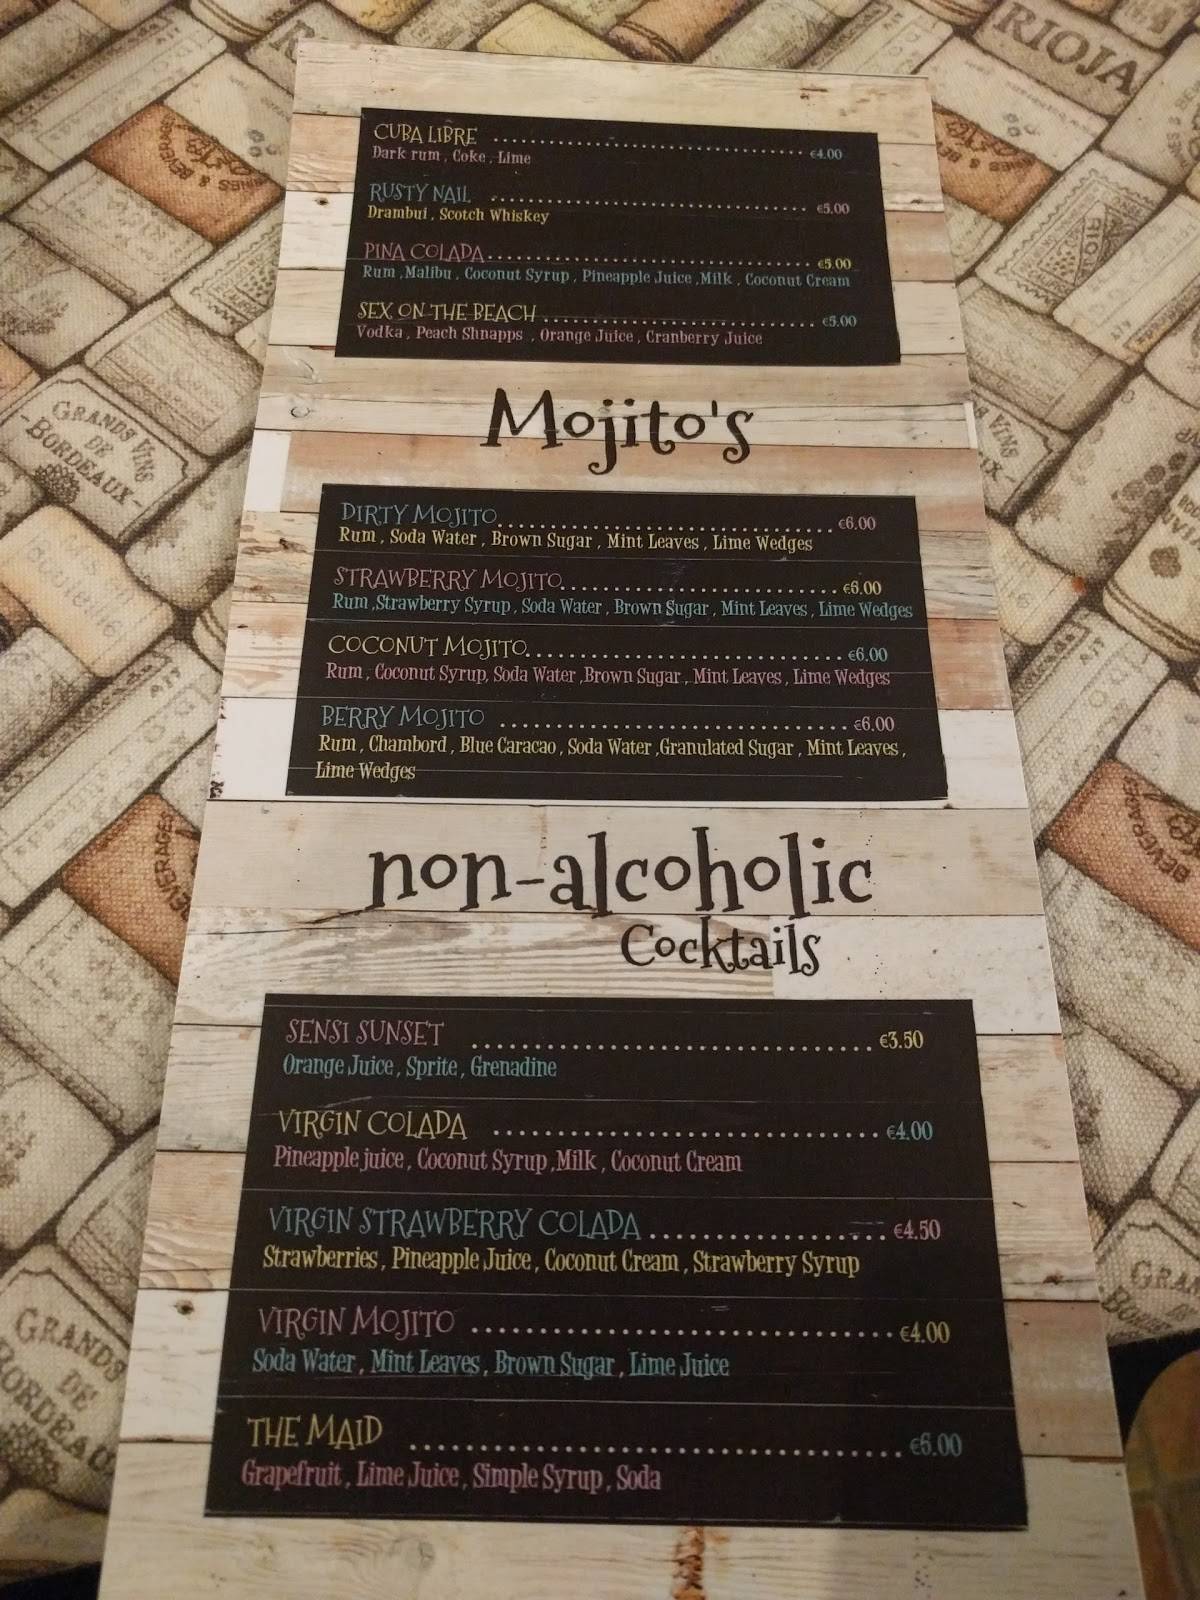 CUBA LIBRE ........................................ €4.00
Dark rum , Coke , Lime
RUSTY NAIL ........................................ €5.00
Drambui , Scotch Whiskey
PINA COLADA........................................ €5.00
Rum ,Malibu , Coconut Syrup , Pineapple Juice ,Milk , Coconut Cream
SEX ON THE BEACH ................................. €5.00
Vodka , Peach Shnapps , Orange Juice , Cranberry Juice
Mojito's
DIRTY MOJITO...................................... €6.00
Rum , Soda Water , Brown Sugar , Mint Leaves , Lime Wedges
STRAWBERRY MOJITO................................ €6.00
Rum ,Strawberry Syrup , Soda Water , Brown Sugar , Mint Leaves , Lime Wedges
COCONUT MOJITO................................... €6.00
Rum , Coconut Syrup, Soda Water ,Brown Sugar , Mint Leaves , Lime Wedges
BERRY MOJITO ..................................... €6.00
Rum , Chambord , Blue Caracao , Soda Water ,Granulated Sugar , Mint Leaves ,
Lime Wedges
non-alcoholic
Cocktails
SENSI SUNSET ..................................... €3.50
Orange Juice , Sprite , Grenadine
VIRGIN COLADA .................................... €4.00
Pineapple juice , Coconut Syrup ,Milk , Coconut Cream
VIRGIN STRAWBERRY COLADA ......................... €4.50
Strawberries , Pineapple Juice , Coconut Cream , Strawberry Syrup
VIRGIN MOJITO .................................... €4.00
Soda Water , Mint Leaves , Brown Sugar , Lime Juice
THE MAID ......................................... €6.00
Grapefruit , Lime Juice , Simple Syrup , Soda
RIOJA
GRANDS VINS
DE
-BORDEAUX-
GRANDS
DE